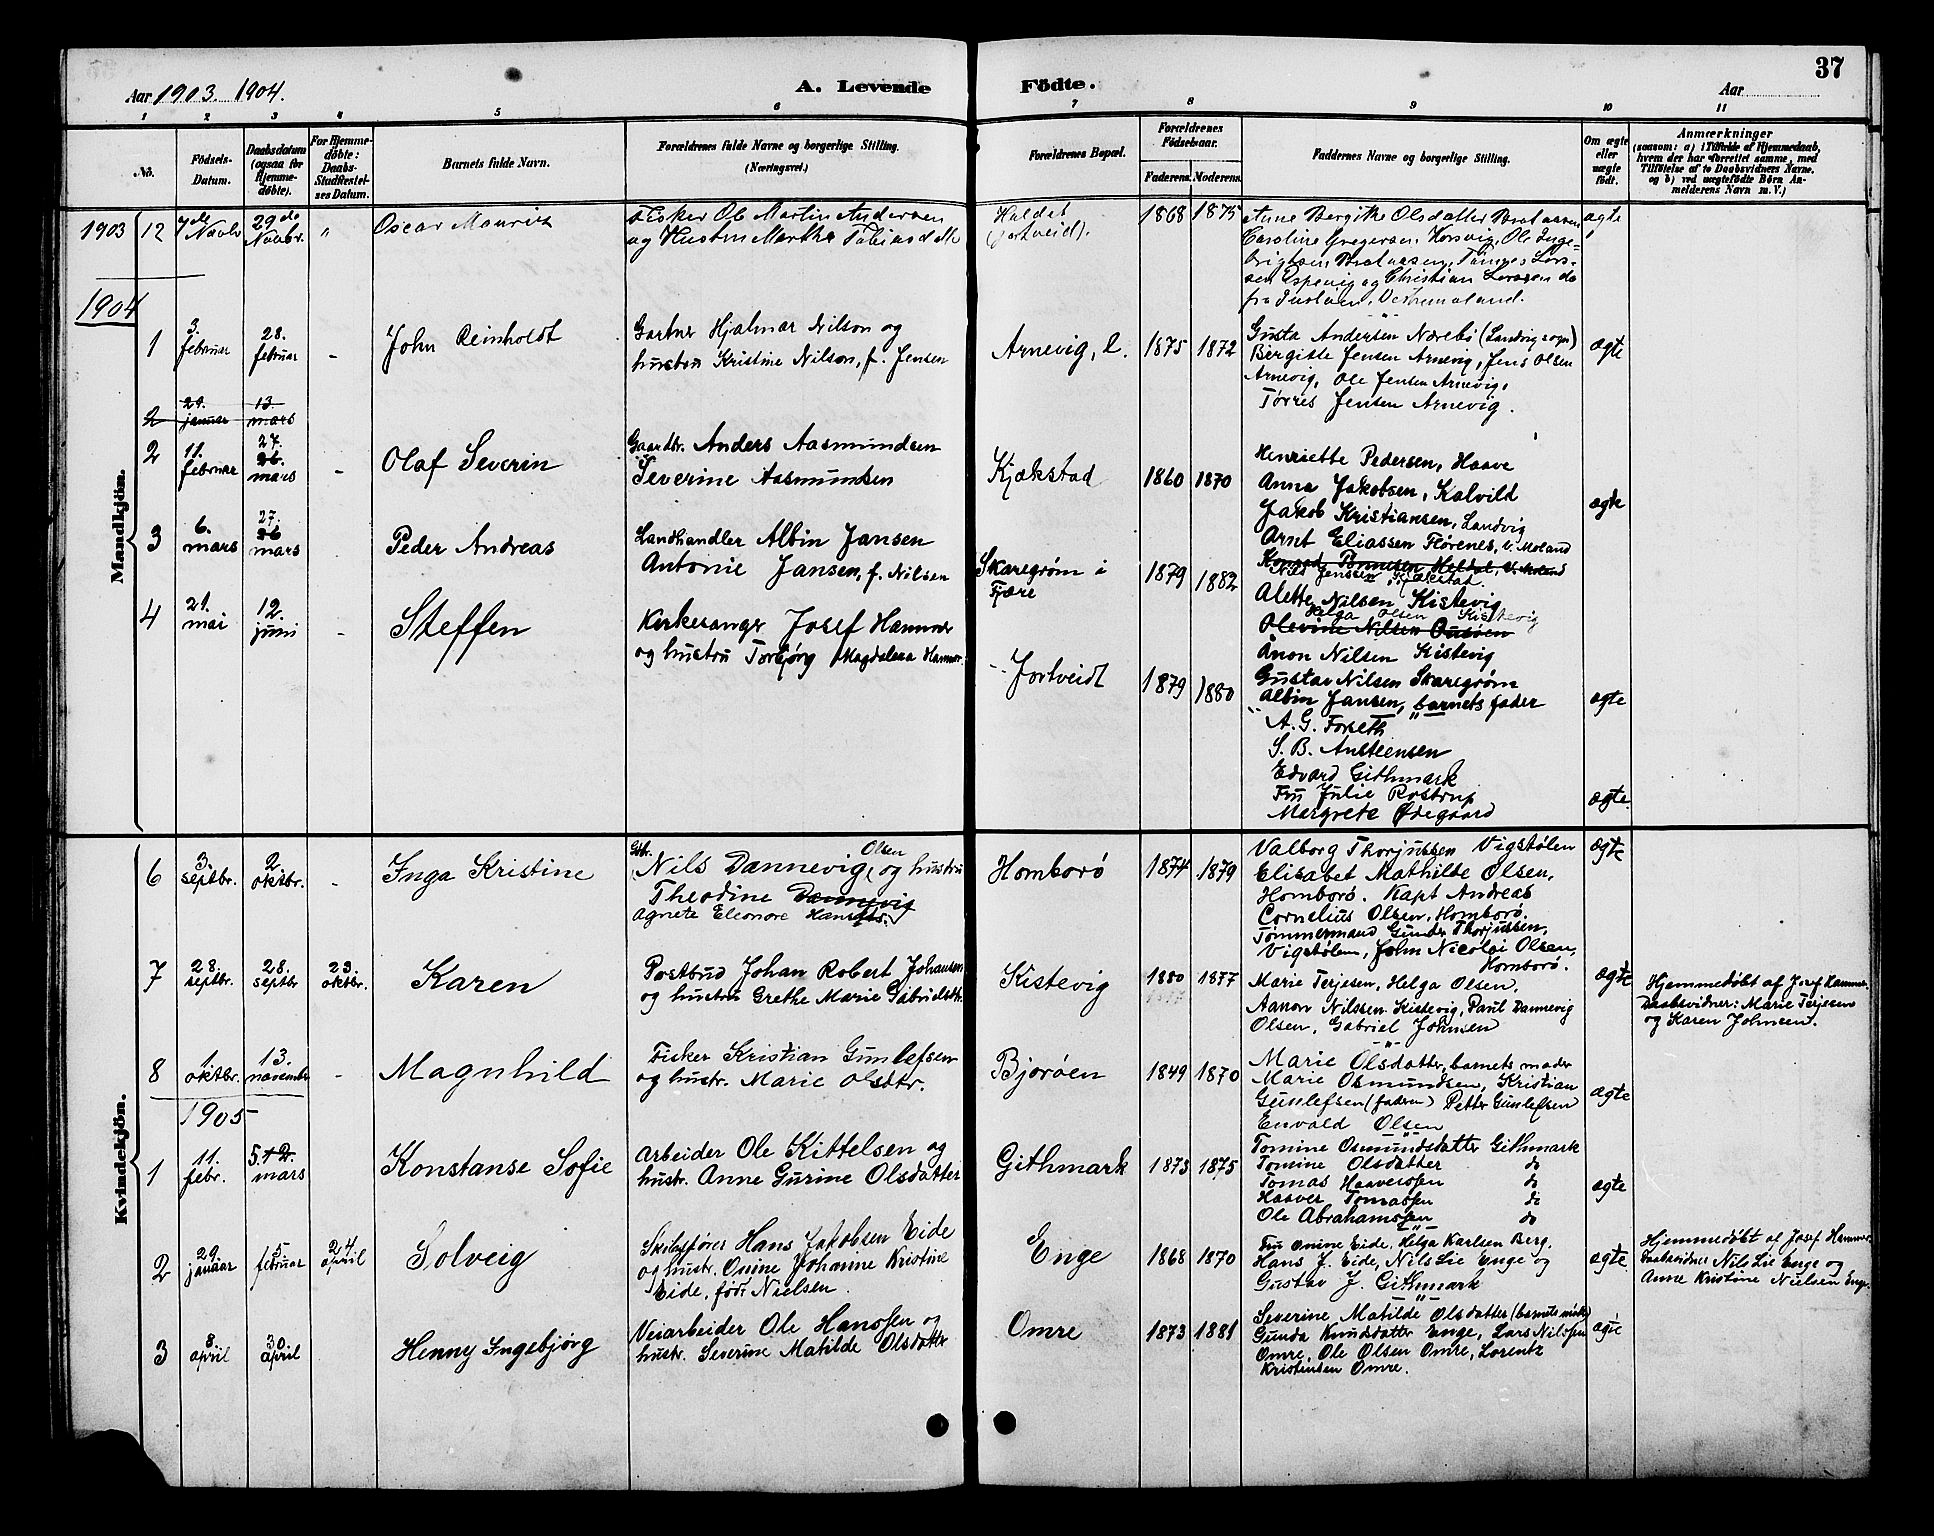 37
Aar 1903. 1904.
A. Levende
Födte.
Aar
1 2 3 4 5 6 7 8 9 10 11
No.
Födsels-Datum.
Daabsdatum (ogsaa for Hjemme-döbte).
For Hjemme-döbte: Daabs-Stadfæstel-ses Datum.
Barnets fulde Navn.
Forældrenes fulde Navne og borgerlige Stilling.
(Næringsvei.)
Forældrenes Bopæl.
Forældrenes Födselsaar.
Faderens. Moderens.
Faddernes Navne og borgerlige Stilling.
Om ægte eller uægte födt.
Anmærkninger
(saasom: a) i Tilfælde af Hjemmedaab, hvem der har forrettet samme, med Tilföielse af to Daabsvidners Navne. og b) ved uægtefödte Börn An-melderens Navn m. V.)
Mandkjön.
1903 12 7de Novbr 29de Novbr. " Oscar Mauritz
Fisker Ole Martin Andersen
og Hustru Martha Tobiasdatter
(Fortveid).
1868 1875
Anne Bergithe Olsdatter Brataasen
Caroline Gregersen, Korsvig, Ole Inge-
brigtsen, Brataasen, Tønnes Lars-
sen Espevig og Christian Larssen do
ægte
1904
1 3. februar 28. februar - John Reinholdt
Gartner Hjalmar Nilson og
hustru Kristine Nilson, f. Jensen
Arnevig, L. 1875 1872
Gusta Andersen Nærebø (Landvig sogn)
Bergitte Jensen Arnevig, Jens Olsen
Arnevig, Ole Jensen Arnevig,
Tørres Jensen Arnevig.
ægte
2 29. januar 13. mars
2 11. februar 27. 26. mars - Olaf Severin
Gaardbr. Anders Aasmundsen
Severine Aasmundsen
Kjækstad 1860 1870
Henriette Pedersen, Haave
Anna Jakobsen, Kalvild
Jakob Kristiansen, Landvig
Arnt Eliassen Flørenes, V. Moland
Nils Jenssen, Kjækstad.
ægte
3 6. mars 27. 26 mars - Peder Andreas
Landhandler Albin Jansen
Antonie Jansen, f. Nilsen
Skaregrøm i Fjære 1879 1882
Alette Nilsen, Kistevig
Helga Olsen Kistevig
Olevine Nilsen
Anon Nilsen Kistevig
Gustav Nilsen Skaregrøm
Albin Jansen, barnets fader
ægte
4 21. mai 12. juni - Steffen
Kirkesanger Josef Hammer
og hustru Torbjørg Magdalena Hammer
Fortveidt 1879 1880
A. G. Forseth
S. B. Austeensen
Edvard Githmark
Fru Julie Rostrup
Margrete Ødegaard
ægte.
Kvindekjön.
6 3. septbr. 2. oktbr. - Inga Kristine
Gbr. Nils Dannevig Olsen, og hustru
Theodine Dannevig
Agnete Eleonore Hansdtr.
Homborø 1874 1879
Valborg Thorjussen Vigstølen
Elisabet Mathilde Olsen,
Homborø. Kapt Andreas
Cornelius Olsen, Homborø.
Tømmermand Gunder Thorjussen,
Vigstølen, John Nicolai Olsen,
Homborø.
ægte
7 28. septbr. 28. septbr 23. oktbr. Karen
Postbud Johan Robert Johansen
og hustru Grethe Marie Gabrielsdtr.
Kistevig 1880 1877
Marie Terjesen, Helga Olsen.
Aanon Nilssen Kistevig, Paul Dannevig
Olsen, Gabriel Johnsen
ægte
Hjemmedøbt af Josef Hammer.
Daabsvidner: Marie Terjesen
og Karen Johnsen.
8 1. oktbr. 13. november - Magnhild
Fisker Kristian Gunlefsen
og hustr. Marie Olsdtr.
Bjorøen 1849 1870
Marie Olsdatter, barnets moder
Marie Osmundsen, Kristian
Gunlefsen (faderen) Petter Gunlefsen
Envald Olsen
ægte
1905
1 11. febr. 5. 12. mars Konstanse Sofie
Arbeider Ole Kittelsen og
hustr. Anne Gurine Olsdatter
Githmark 1873 1875
Tomine Osmundsdatter Githmark
Tomine Olsdatter do
Tomas Haaverssen do
Haaver Tomassen do
Ole Abrahamssen do
ægte
2 29. januar 5. februar 24 april Solveig
Skibsfører Hans Jakobsen Eide
og hustr. Onine Johanne Kristine
Eide, født Nielsen.
Enge 1868 1870
Fru Onine Eide, Helga Karlsen Berg,
Hans J. Eide, Nils Lie Enge og
Gustav J. Githmark
ægte
Hjemmedøbt af Josef Hammer.
Daabsvidner Nils Lie Enge og
Anne Kristine Nielsen Enge.
3 8. april 30. april Henny Ingebjørg
Veiarbeider Ole Hanssen og
hustr. Severine Matilde Olsdatter
Omre 1873 1881
Severine Matilde Olsdatter (barnets moder)
Gunda Knudsdatter Enge, Lars Nilssen
Omre, Ole Olsen Omre, Lorentz
Kristensen Omre.
ægte